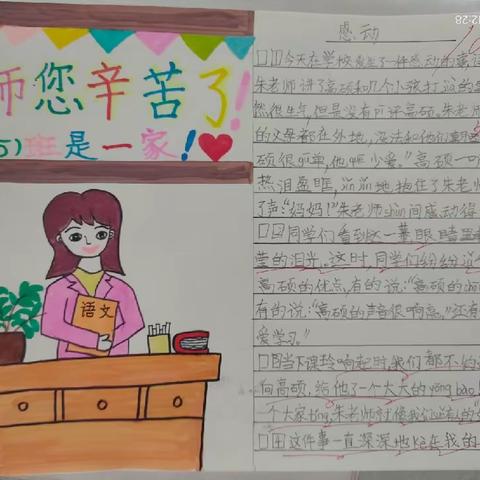 师您辛苦了!
5)班是一家!
语文
12:28
感动
今天在学校发生了一件感动的事
朱老师讲了高硕和几个小孩打
然很生气,但是没有pī评高硕。朱老师
的父母都在外地,没法和他们
硕很gū单,他quē少爱。"高硕一
热泪盈眶,jǐn jǐn地抱住了朱老师
了声:"妈妈!"朱老师shùn间感动得
同学们看到这一幕眼睛里
莹的泪光。这时,同学们纷纷说
高硕的优点,有的说:"高硕的
有的说:"高硕的声音很响亮。"还有
爱学习。"
当下课玲响起时,我们都不约
向高硕,给他了一个大大的yōng bào
一个大家tíng,朱老师就像我们
这件事一直深深地kè在我的